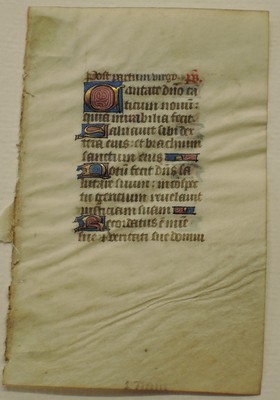 Post partum virgo. ps.
Cantate dño ca
ticum nouū:
quia mirabilia fecit.
Saluauit sibi dex
tera eius: et brachium
sanctum eius
Notū fecit dñs sa
lutare suum: in cōspec
tu gentium reuelauit
iusticiam suam
Recordatus ē mīe
sue et veritati sue domui